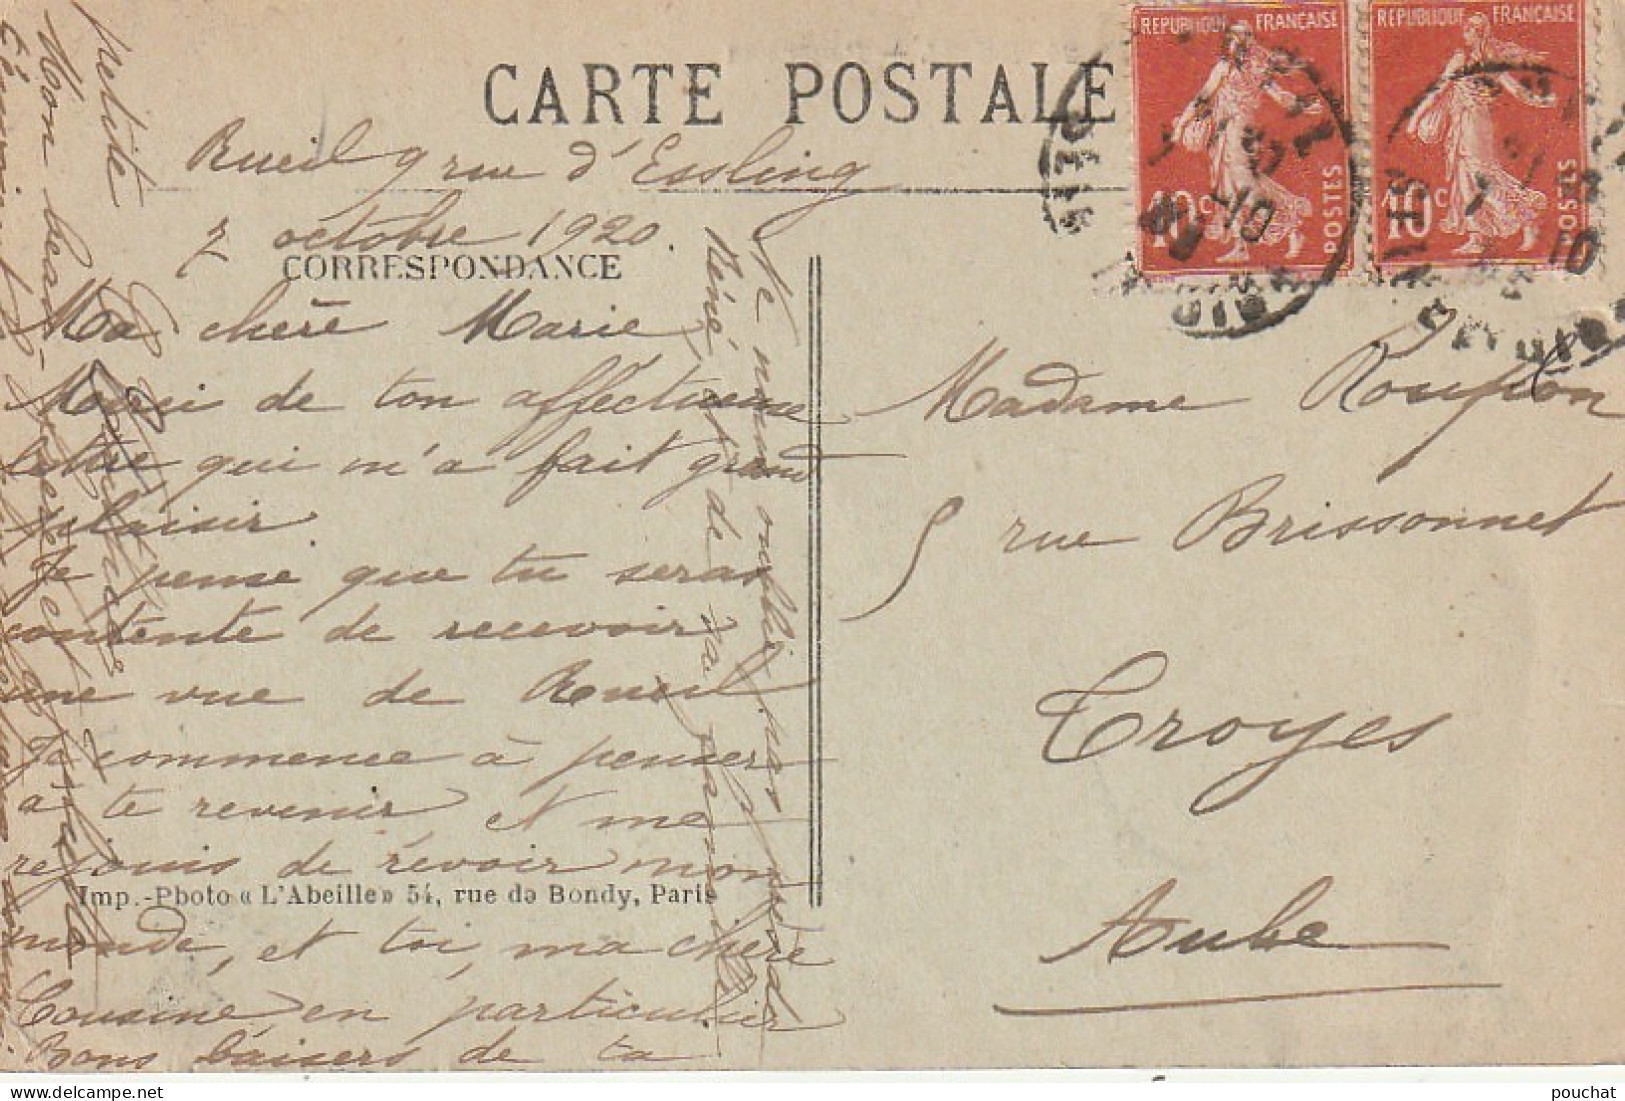 CARTE POSTALE
REPUBLIQUE FRANÇAISE
10c
POSTES
REPUBLIQUE FRANÇAISE
10c
POSTES
Rueil 9 rue d'Essling
7 octobre 1920
CORRESPONDANCE
Ma chère Marie
Merci de ton affectueuse
lettre qui m'a fait grand
plaisir.
Je pense que tu seras
contente de recevoir
une vue de Rueil
Je commence à penser
a te revenir et me
rejouis de revoir mon
monde, et toi, ma chère
Cousine en particulier
Bons baisers de ta
petite
Mon beau
Réné de sa
Je oublie pas
Imp.-Photo « L'Abeille » 54, rue de Bondy, Paris
Madame
5 rue Brissonnet
Troyes
Aube
pouchat